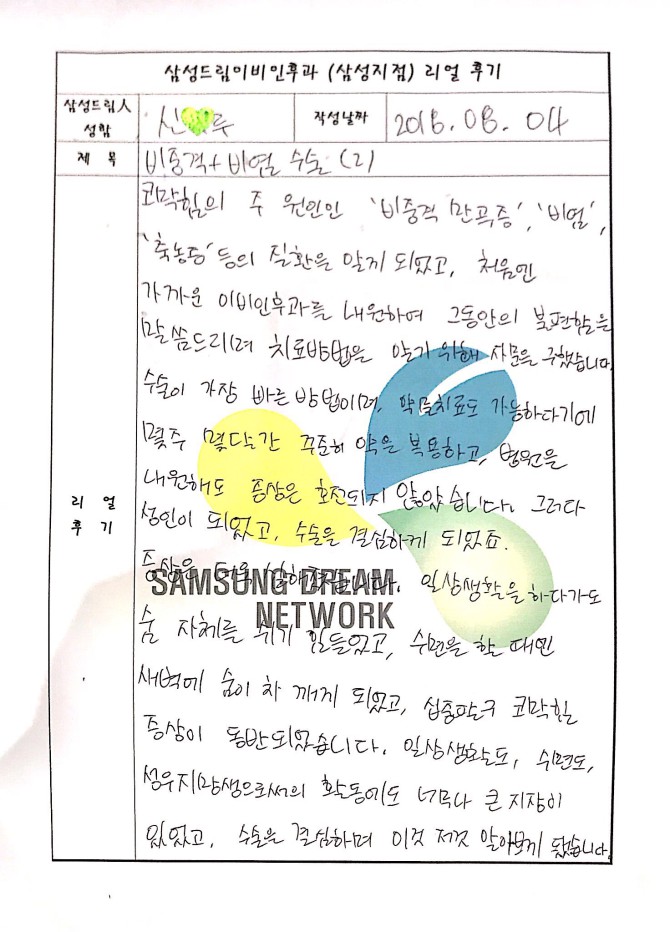 삼성드림이비인후과 (삼성지점) 리얼 후기
삼성드림人 성함
신 루
작성날짜
2016. 08. 04
제 목
비중격+비염 수술 (2)
리 얼
후 기
코막힘의 주 원인인 '비중격 만곡증', '비염',
'축농증' 등의 질환을 알게 되었고, 처음엔
가까운 이비인후과를 내원하여 그동안의 불편함을
말씀드리며 치료방법을 알기 위해 자문을 구했습니다.
수술이 가장 빠른 방법이며, 약물치료도 가능하다기에
몇주 몇달간 꾸준히 약을 복용하고, 병원을
내원해도 증상은 호전되지 않았습니다. 그러다
성인이 되었고, 수술을 결심하게 되었죠.
증상은 더욱 심해졌습니다. 일상생활을 하다가도
숨 자체를 쉬기 힘들었고, 수면을 할 때엔
새벽에 숨이 차 깨게 되었고, 십중팔구 코막힘
증상이 동반되었습니다. 일상생활도, 수면도,
성우지망생으로서의 활동에도 너무나 큰 지장이
있었고, 수술을 결심하며 이것 저것 알아보게 됐습니다.
SAMSUNG DREAM
NETWORK